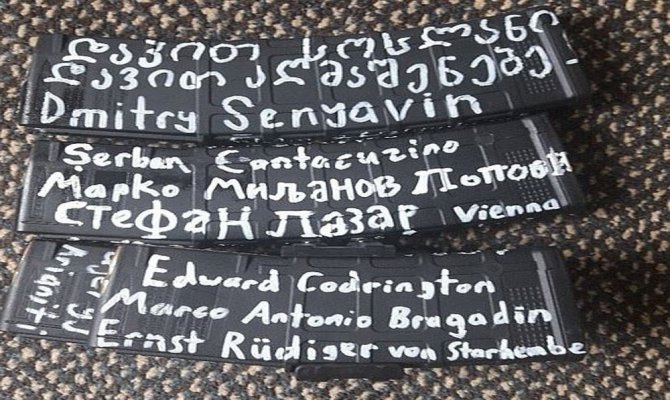 დავით სოსლანი
დავით აღმაშენებე
Dmitry Senyavin
Şerban Cantacuzino
Марко Миљанов Попови
Стефан Лазар Vienna
Edward Codrington
Marco Antonio Bragadin
Ernst Rüdiger von Starhembe